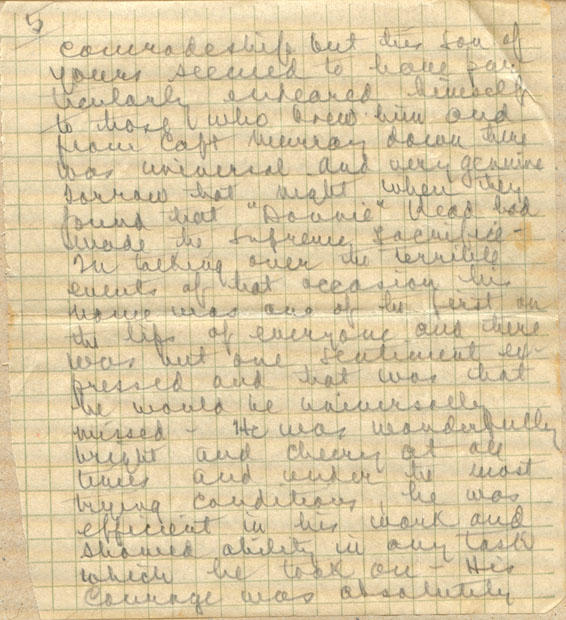 5
comradeship but this son of
yours seemed to have par-
ticularly endeared himself
to those who knew him and
from Capt Murray down there
was universal and very genuine
sorrow that night when they
found that "Donnie" Head had
made the Supreme Sacrifice -
In talking over the terrible
events of that occasion his
name was one of the first on
the lips of everyone and there
was but one sentiment ex-
pressed and that was that
he would be universally
missed - He was wonderfully
bright and cheery at all
times and under the most
trying conditions, he was
efficient in his work and
showed ability in any task
which he took on - His
courage was absolutely